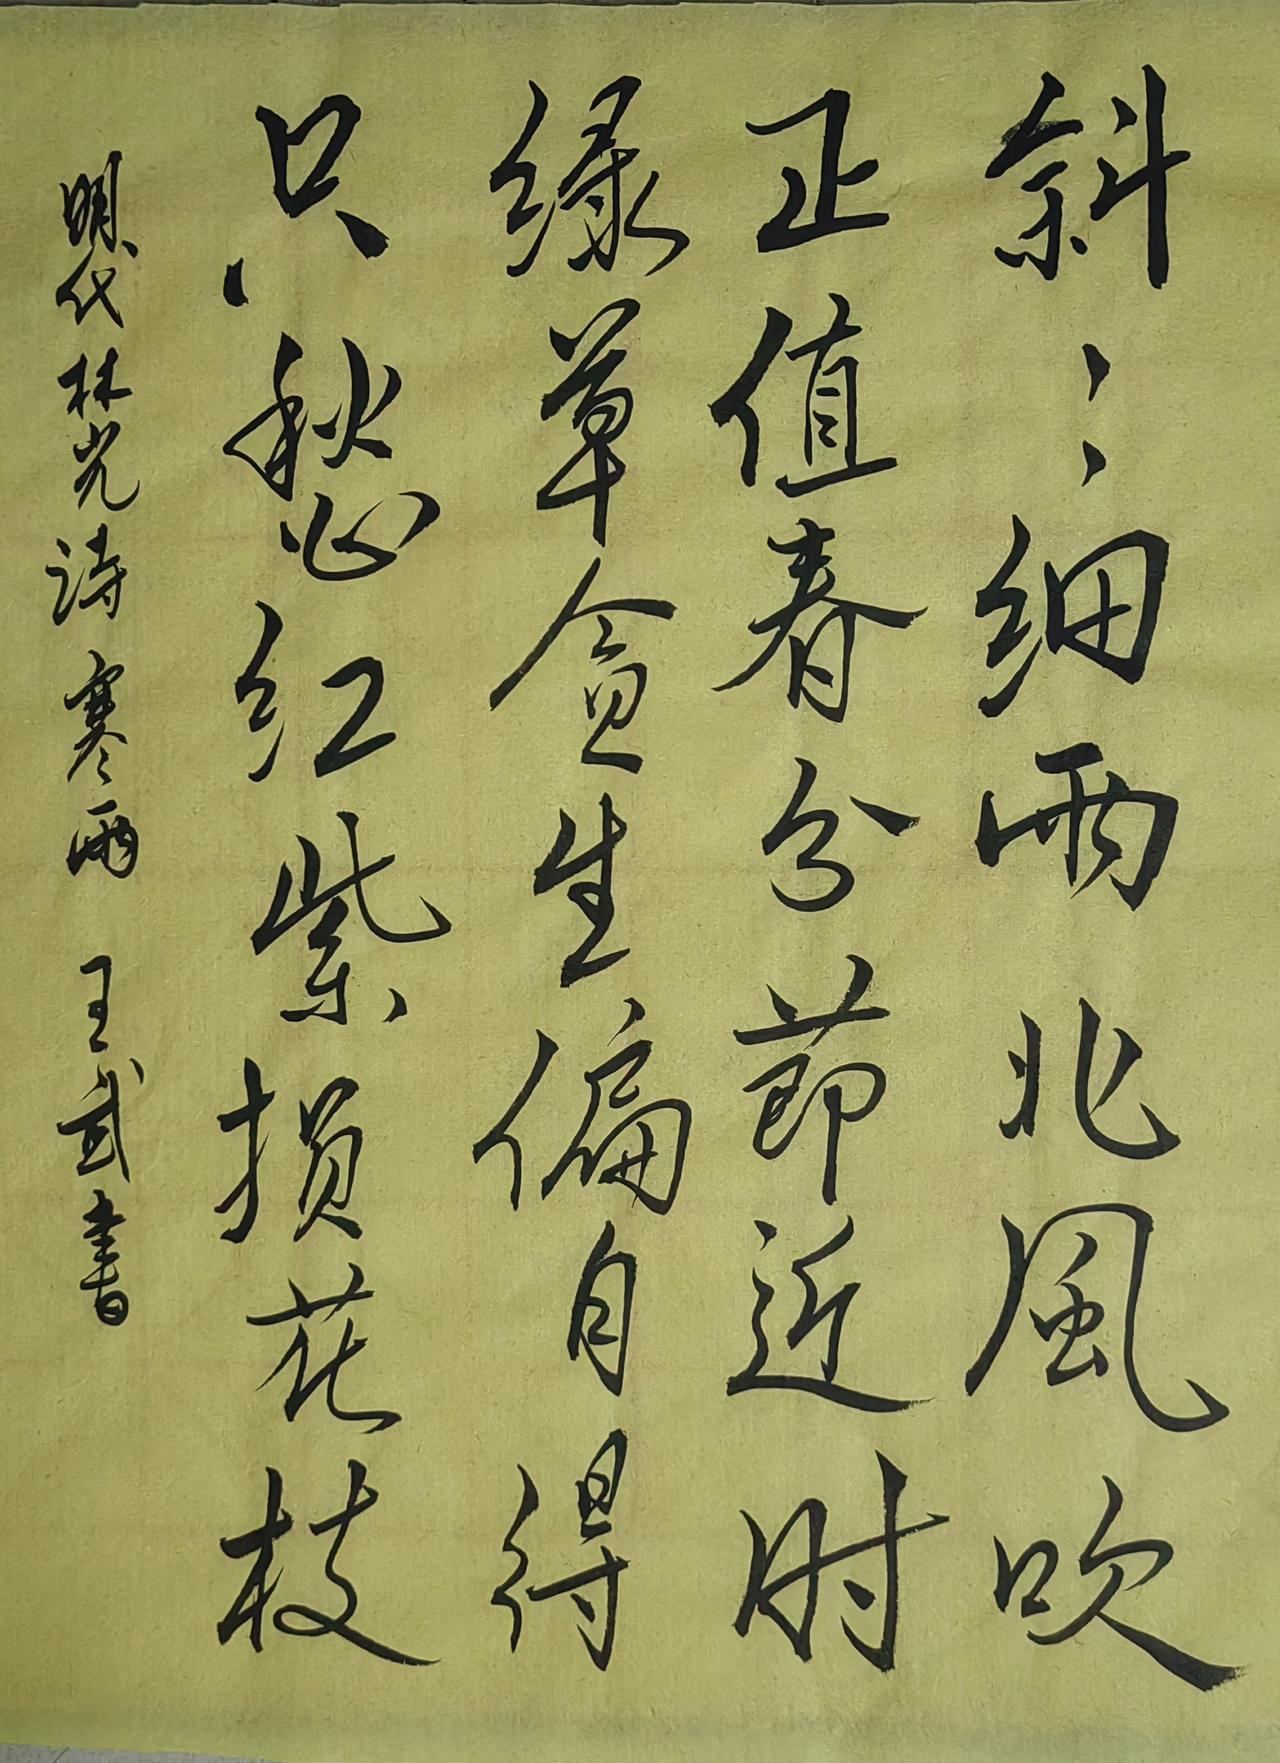 斜〻细雨北風吹
正值春分節近时
绿草贪生偏自得
只愁红紫损花枝
明代林光诗寒雨 王武書